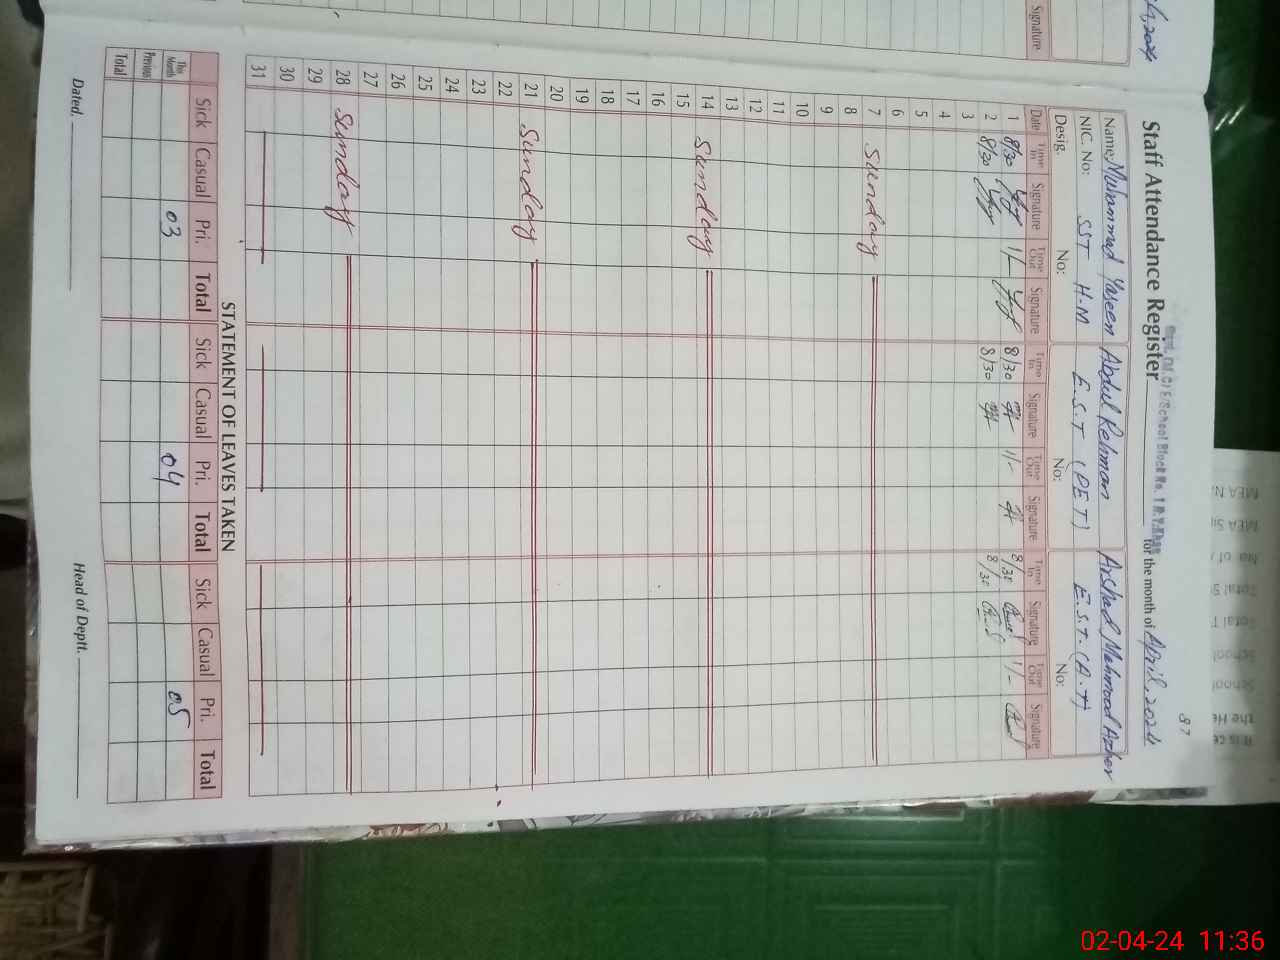 Signature
87
Govt. (M.C) E/School Block No. 1 R.Y.Khan
Staff Attendance Register for the month of April, 2024
Name: Muhammad Yaseen Abdul Rehman Arshad Mehmood Azher
NIC. No: SST H-M E.S.T (PET) E.S.T. (A.T)
Desig. No: No: No:
Date Time In Signature Time Out Signature Time In Signature Time Out Signature Time In Signature Time Out Signature
1 8/30 1/- 8/30 1/- 8/30 1/-
2 8/30 8/30 8/30
3
4
5
6
7 Sunday
8
9
10
11
12
13
14 Sunday
15
16
17
18
19
20
21 Sunday
22
23
24
25
26
27
28 Sunday
29
30
31
STATEMENT OF LEAVES TAKEN
Sick Casual Pri. Total Sick Casual Pri. Total Sick Casual Pri. Total
This Month 03 04 05
Previous
Total
Dated. Head of Deptt.
MEA N
MEA Si
No of
Total S
Total T
School
School
the He
It is ce
02-04-24 11:36